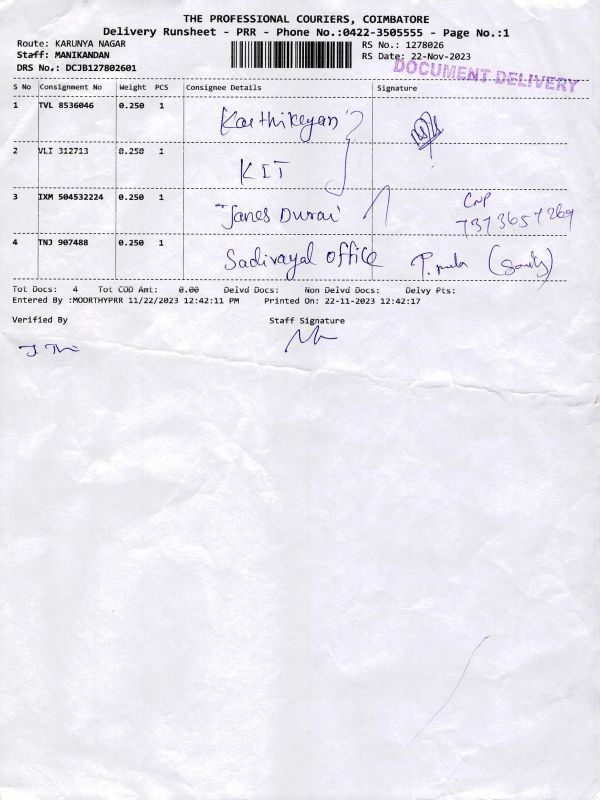 THE PROFESSIONAL COURIERS, COIMBATORE
Delivery Runsheet - PRR - Phone No.:0422-3505555 - Page No.:1
Route: KARUNYA NAGAR RS No.: 1278026
Staff: MANIKANDAN RS Date: 22-Nov-2023
DRS No.: DCJB127802601 DOCUMENT DELIVERY
S No Consignment No Weight PCS Consignee Details Signature
1 TVL 8536046 0.250 1 Karthikeyan
2 VLI 312713 0.250 1 KIT
3 IXM 504532224 0.250 1 Janes Durai CNP
7373657269
4 TNJ 907488 0.250 1 Sadivayal office
Tot Docs: 4 Tot COD Amt: 0.00 Delvd Docs: Non Delvd Docs: Delvy Pts:
Entered By :MOORTHYPRR 11/22/2023 12:42:11 PM Printed On: 22-11-2023 12:42:17
Verified By Staff Signature